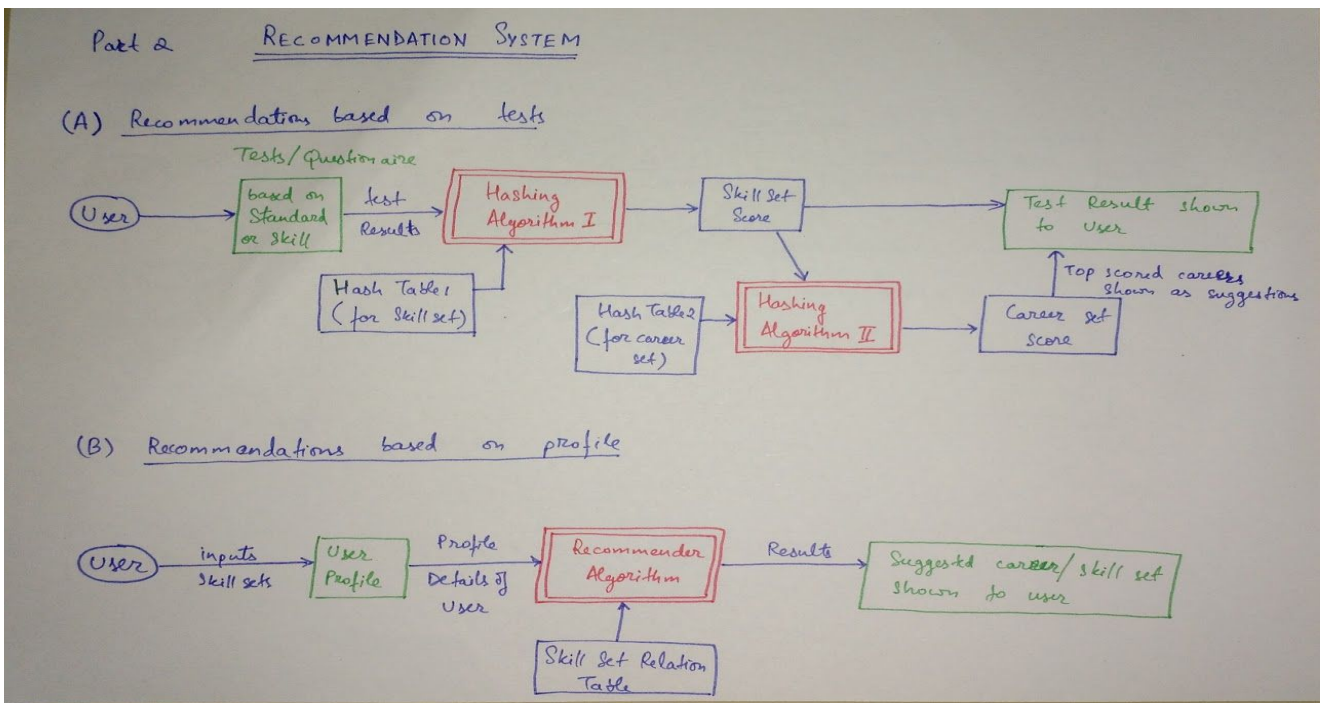 Part 2 RECOMMENDATION SYSTEM
(A) Recommendations based on tests
Tests/Questionaire
User
based on
Standard
or skill
test
Results
Hashing
Algorithm I
Skill Set
Score
Test Result shown
to user
Hash Table1
(for Skill set)
Hash Table2
(for career
set)
Hashing
Algorithm II
Career set
score
Top scored careers
shown as suggestions
(B) Recommendations based on profile
User
inputs
skill sets
User
Profile
Profile
Details of
User
Recommender
Algorithm
Results
Suggested career/skill set
shown to user
Skill Set Relation
Table